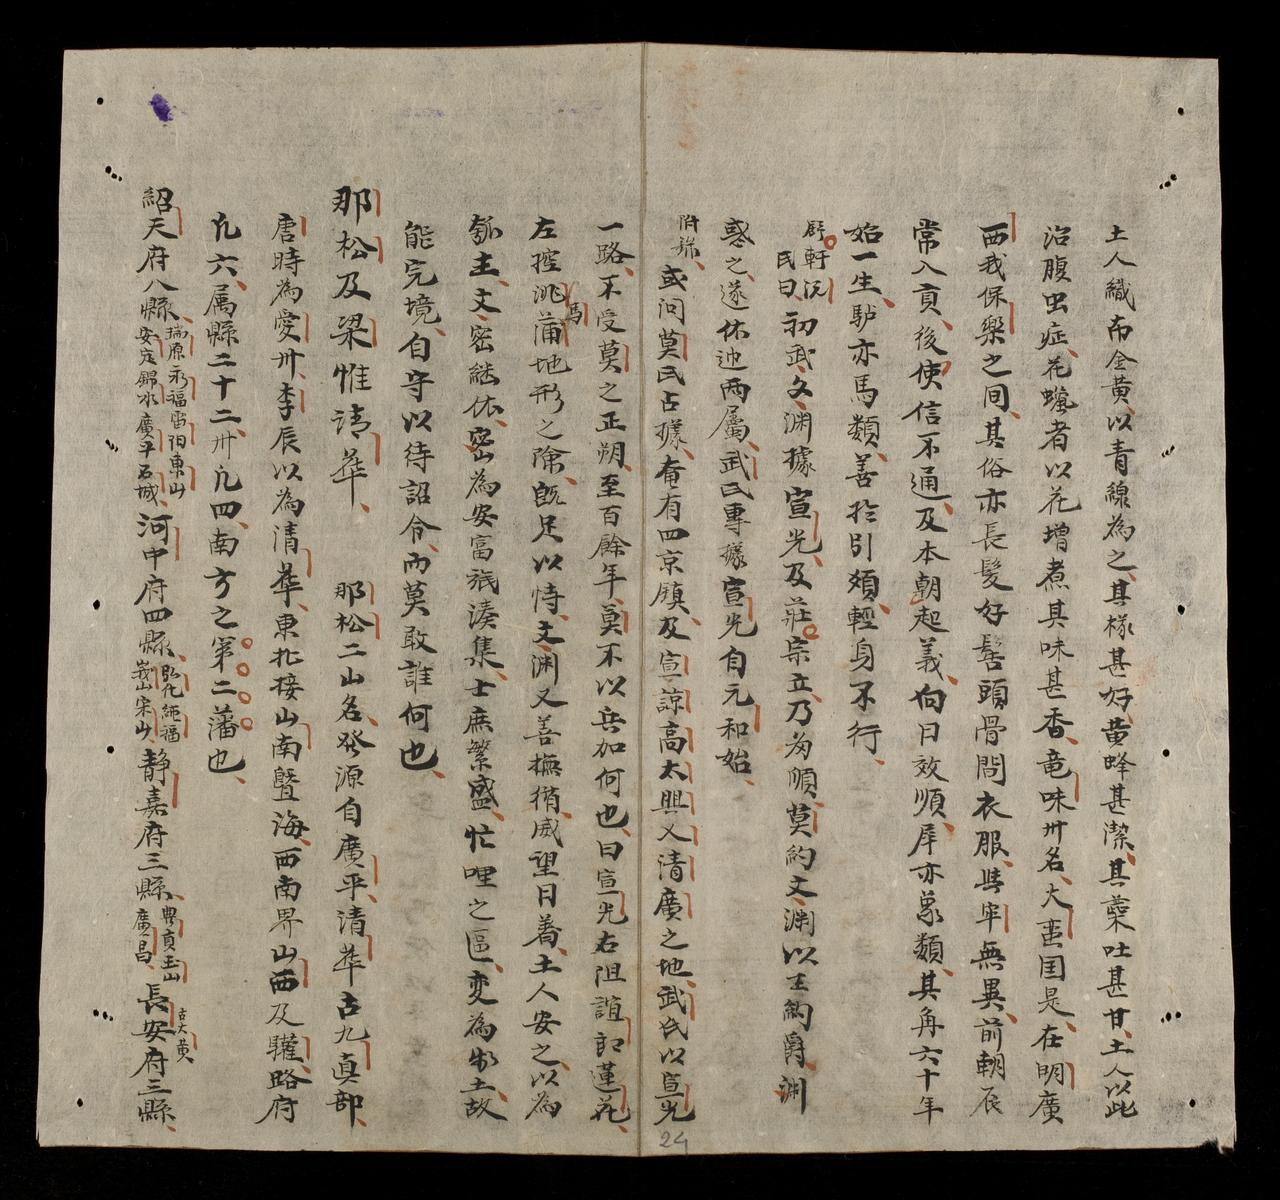 土人織布全黄以青線為之其樣甚好黄蜂甚潔其藥吐甚甘土人以此
治腹虫症花蠟者以花增煮其味甚香竜味卅名大蛮国是在明廣
西我保樂之间其俗亦長髮好髻頭骨問衣服牲牢無異前朝辰
常入貢後使信不通及本朝起義向日效順犀亦象類其角六十年
始一生驢亦馬類善於引頻輕身不行
民曰初武文渊據宣光及莊宗立乃芻順莫約文渊以王納爵渊
惑之遂休迆两屬武氏專據宣光自元和始
附録 或问莫氏占據奄有四京鎮及宣諒高太興又清廣之地武氏以宣光
一路不受莫之正朔至百餘年莫不以兵加何也曰宣光右阻誼郎蓮花
左控洮蒲地形之險既足以恃文渊又善撫循威望日着土人安之以為
馬
瓠主文密継依密為安富旅湊集士庶繁盛忙哩之區変為米土故
能完境自守以待詔令而莫敢誰何也
那松及梁惟請華 那松二山名發源自廣平清華古九真部
唐時為愛卅李辰以為清華東北接山南暨海西南界山西及驩路府
凡六属縣二十二卅凡四南方之第二藩也
紹天府八縣 瑞原永福 東山 安定錦水廣平石城 河中府四縣 弘化純福 峩山宋山 静嘉府三縣 貢玉山 廣昌 長安府三縣
古大黄